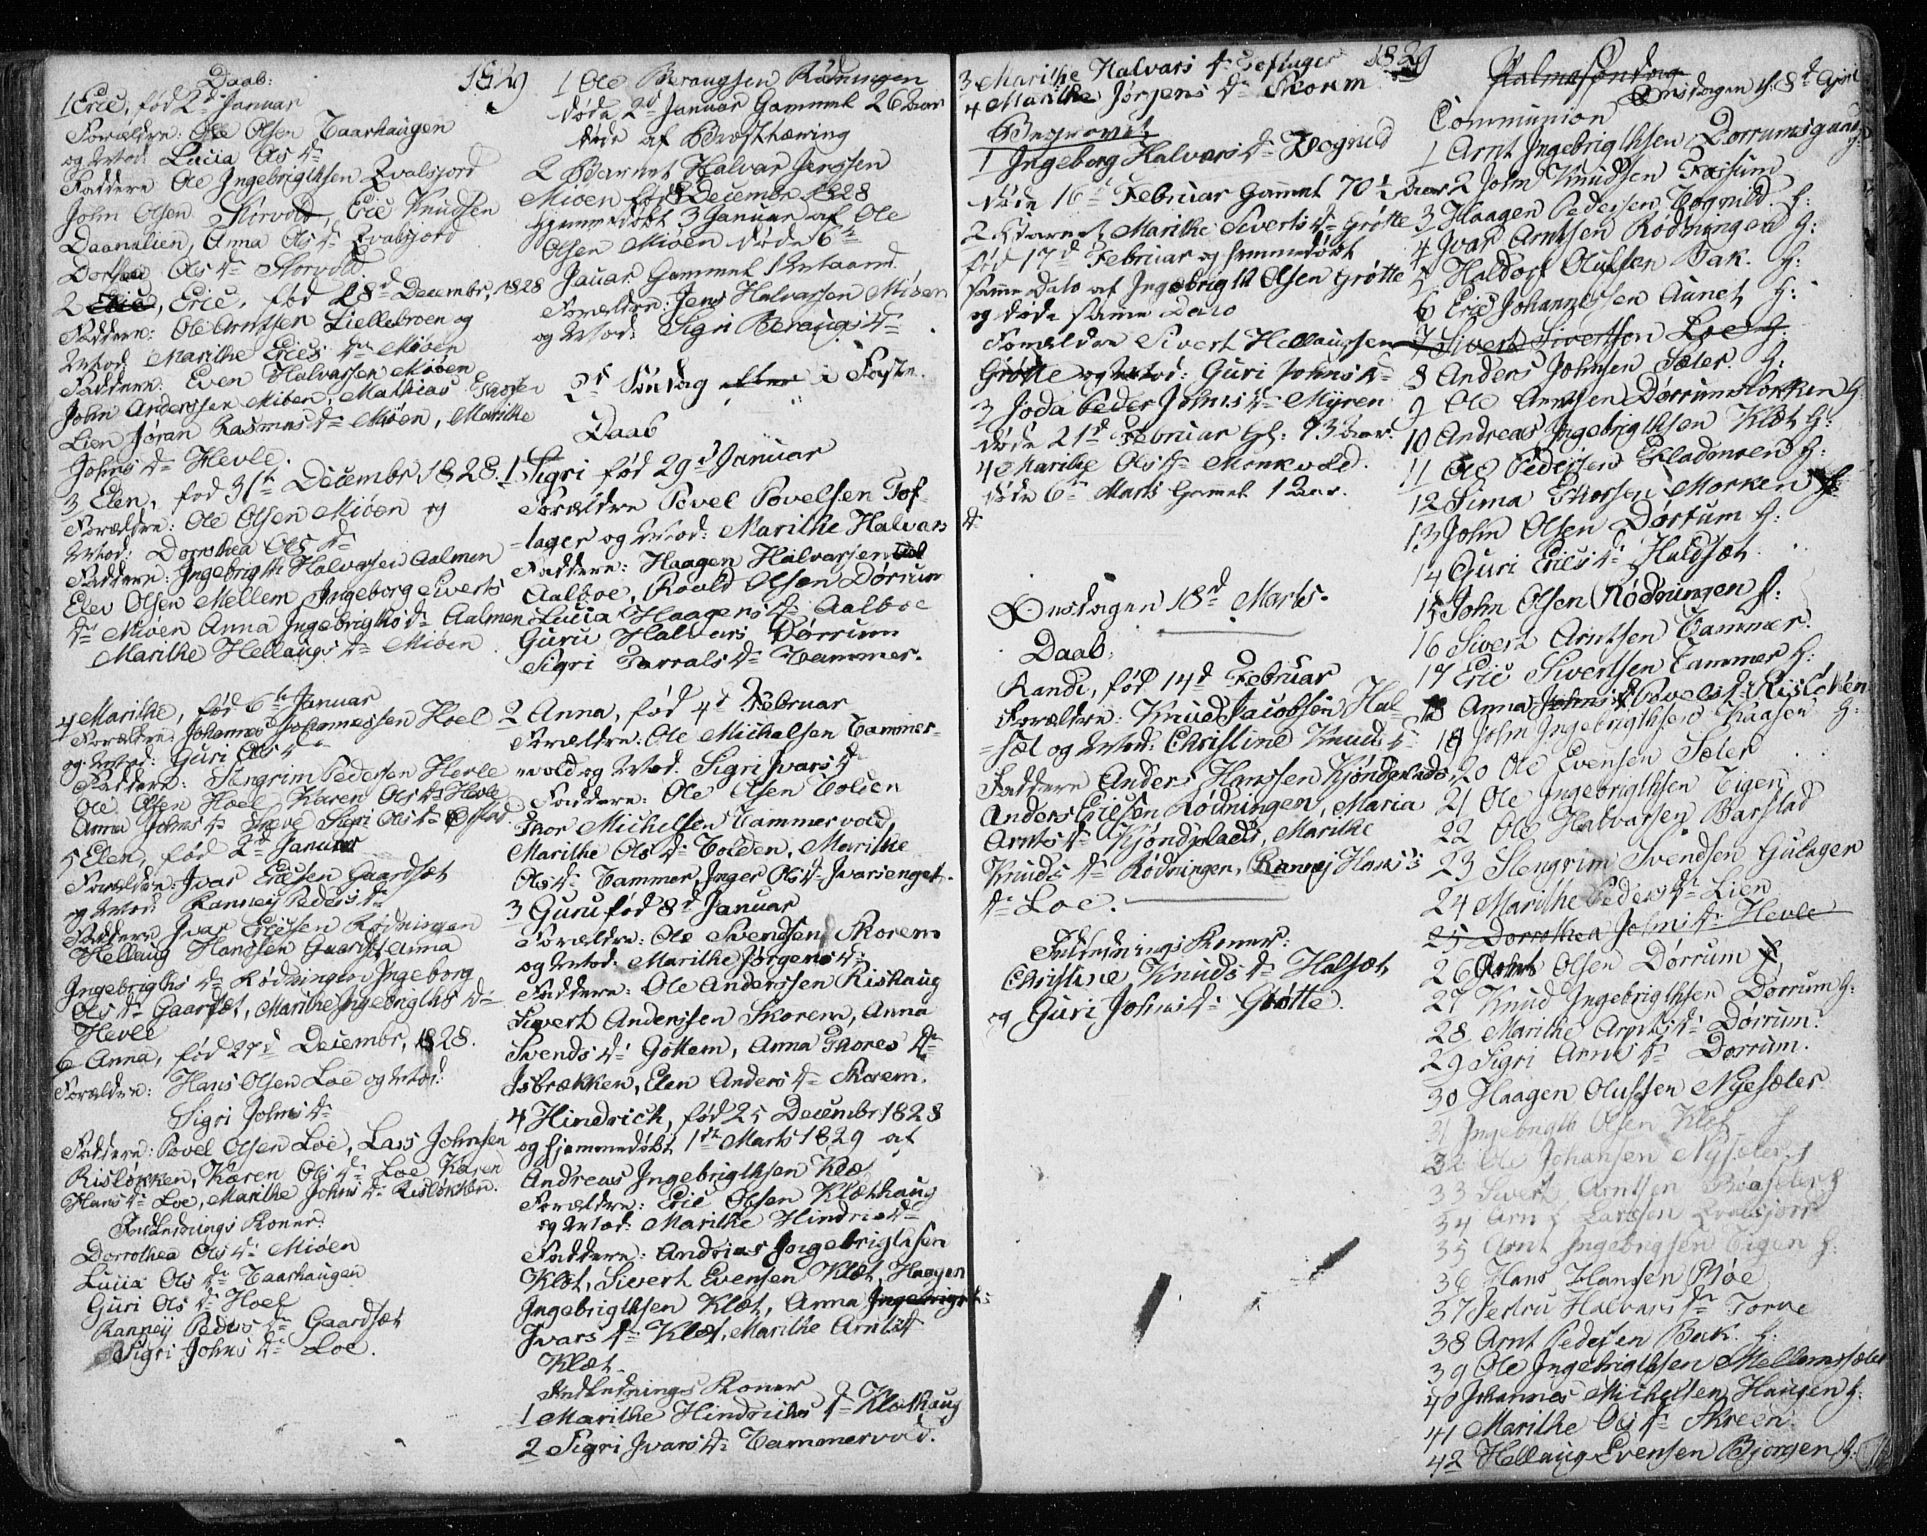 Daab: 1829
1 Eric, fød 2d Januar
Forældre: Ole Olsen Taarhaugen
og Mod: Lucia Ols Dr
Faddere Ole Ingebrigthsen Evalsjord
John Olsen Storvold, Eric Knudsen
Daanalien, Anna Ols Dr Evalsjord
Dorthea Ols Dr Storvold
2 Eric, Eric, fød 28d Decembr, 1828
Forældre: Ole Arntsen Lillebroen og
Mod Marithe Erics Dr Miøen
Faddere: Even Halvarsen Miøen
John Anderssen Miøen, Mathias
Lien Jøran Rasmus Dr Miøen, Marithe
Johns Dr Hevle.
3 Elen, fød 31te Decembr 1828.
Forældre: Ole Olsen Miøen og
Mod: Dorothea Ols Dr
Faddere: Ingebrigth Halvorsen Aalmen
Elev Olsen Mellem Ingeborg Siverts
Dr Miøen Anna Ingebrigths Dr Aalmen
Marithe Hellaugs Dr Miøen
4 Marithe, fød 6te Januar
Forældre: Johannes Johannessen Hoel
og Mod: Guri Ols Dr
Faddere: Stengrim Pedersen Hevle
Ole Olsen Hoel Karen Ols Dr Hevle
Anna Johns Dr Hevle Sigri Ols Dr
5 Elen, fød 2d Januar
Forældre: Ivar Ericsen Gaardsæt
og Mod: Ranney Peders Dr
Faddere Ivar Ericsen Rødningen
Hellaug Hanssen Gaardsæt Anna
Ingebrigths Dr Rødningen Ingeborg
Ols Dr Gaarsæt, Marithe Ingebrigths Dr
Hevle
6 Anna, fød 27d Decembr, 1828.
Forældre: Hans Olsen Loe og Mod:
Sigri Johns Dr
Faddere: Povel Olsen Loe, Lars Johnsen
Risløkken, Karen Ols Dr Loe Karen
Hans Dr Loe, Marithe Johns Dr Risløkken.
Indlednings Koner:
Dorrothea Ols Dr Miøen
Lucia Ols Dr Taarhaugen
Guri Ols Dr Hoel
Ranney Peders Dr Gaardsæt
Sigri Johns Dr Loe.
1 Ole Beraugsen Rødningen
døde 2d Januar Gammel 26 Aar
døde af Brøsttæring
2 Barnet Halvar Jenssen
Miøen fød Decembr 1828
hjemmedøbt 3 Januar af Ole
Olsen Miøen døde 6te
Januar Gammel
Forældre: Jens Halvarsen Miøen
og Mod: Sigri Beraugs Dr
2d Søndag efter i Faste.
Daab
1 Sigri fød 29d Januar
Forældre Povel Povelsen Tof-
-tager og Mod: Marithe Halvars
Faddere: Haagen Halvarsen
Aalboe, Roald Olsen Dørrum
Lucia Haagens Dr Aalboe
Guru Halvars Dørrum
Sigri Harrals Dr Tammer.
2 Anna, fød 4d Februar
Forældre: Ole Michelsen Tammer-
-vold og Mod: Sigri Ivars Dr
Faddere: Ole Olsen Volden
Thor Michelsen Tammervold
Marithe Ols Dr Volden, Marithe
Ols Dr Tammer, Inger Ols Dr Ivarsenget.
3 Guru fød 8d Januar
Forældre: Ole Svendsen Skorem
og Mod: Marithe Jørgens Dr
Faddere: Ole Anderssen Rishaug
Sivert Anderssen Skorem, Anna
Svends Dr Gottem, Anna Thores Dr
Isbrækken, Elen Anders Dr Skorem.
4 Hindrich, fød 25 Decembr 1828
og hjemmedøbt 1te Marts 1829 af
Andreas Ingebrigthsen Klæt
Forældre: Eric Olsen Klæthaug
og Mod: Marithe Hindrics Dr
Faddere: Andrias Ingebrigthsen
Klæt, Sivert Evensen Klæt, Haagen
Ingebrigthsen Klæt, Anna Ingebrigt:
Ivars Dr Klæt, Marithe Arnts Dr
Klæt
Indlednings Koner
1 Marithe Hindrichs Dr Klæthaug
2 Sigri Ivars Dr Tammervold.
3 Marithe Halvars Dr Toftager 1829
4 Marithe Jørgens Dr Skorem
Begravet
1 Ingeborg Halvars Dr Vognild
døde 16de Februar Gammel 70 1/2 Aar
2 Barnet Marithe Siverts Dr Grøtte
fød 17d Februar og hjemmedøbt
samme Dato af Ingebrigth Olsen Grøtte
og døde samme Dato
Forældre Sivert Hellaugsen
Grøtte og Mod: Guri Johns Dr
3 Joda Peder Johns Dr Myren
døde 21d Februar Gl: 73 Aar.
4 Marithe Ols Dr Monkvold.
døde 6te Marts Gammel 1 Aar.
Onsdagen 18d Marts.
Daab:
Randi, fød 14d Februar
Forældre: Knud Jacobsen Hal-
=sæt og Mod: Christine Knuds Dr
Faddere Anders Hanssen Kjøndsplads,
Anders Ericsen Rødningen, Maria
Arnts Dr Kjøndsplads, Marithe
Knuds Dr Rødningen, Ranney Hans's
Dr Loe.
Indlednings Koner:
Christine Knuds Dr Halsæt
og Guri Johns Dr Grøtte.
Palmesøndag
Onsdagen d. 8d April
Communion
1 Arnt Ingebrigthsen Dorrumsgaard
2 John Knudsen Fossum
3 Haagen Pedersen Vognild. H:
4 Ivar Arntsen Rødningen H:
5 Haldor Olufsen Bak. H:
6 Eric Johannessen Aunet H:
7 Sivert Sivertsen Loe H:
8 Anders Johnsen Sæter. H:
9 Ole Arntsen Dørrumsløkken H
10 Andreas Ingebrigthsen Klæt H:
11 Ole Pedersen Gladmoen H:
12 Sima Thorsen Morken
13 John Olsen Dørrum H:
14 Guri Erics Dr Haldsæt
15 John Olsen Rødningen H:
16 Sivert Arntsen Tammer.
17 Eric Sivertsen Tammer H:
18 Anna Johns Povels Dr Risløkken
19 John Ingebrigthsen Kaasen H:
20 Ole Evensen Sæter
21 Ole Ingebrigthsen Tigen
22 Ole Halvarsen Barstad
23 Stengrim Svendsen Gulager
24 Marithe Peders Dr Lien
25 Dorrothea Johns Dr Hevle
26 John Olsen Dørrum
27 Knud Ingebrigthsen Dørrum H:
28 Marithe Arnts Dr Dørrum.
29 Sigri Arnts Dr Dørrum.
30 Haagen Olufsen Nyesæter
31 Ingebrigth Olsen Klæt H
32 Ole Johansen Nysæter
33 Sivert Arntsen H
34 Arnt Larssen Evalsjord
35 Arnt Ingebrigsen Tigen H:
36 Hans Hansen Bøe
37 Jertru Halvars Dr Torve
38 Arnt Pedersen Bak. H:
39 Ole Ingebrigthsen Mellemsæter
40 Johannes Michelsen Haugen H:
41 Marithe Ols Dr Skreen.
42 Hellaug Evensen Bjørgen H: